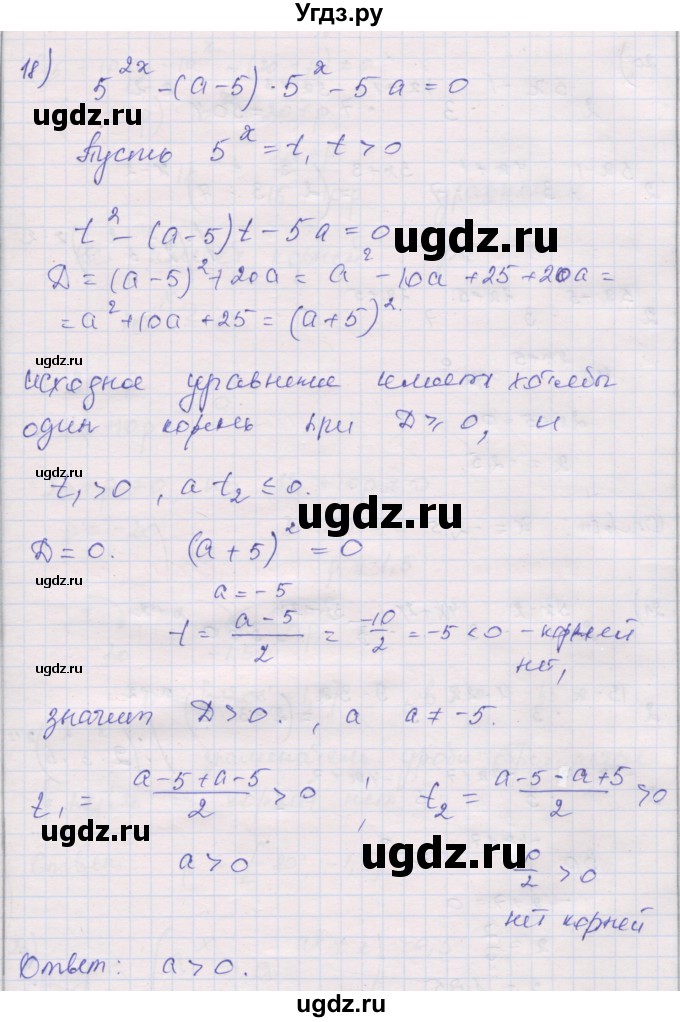 Угдз.ру
18) 5^{2x} - (a-5) · 5^x - 5a = 0
Пусть 5^x = t, t > 0
t^2 - (a-5)t - 5a = 0
ugdz.ru
Д = (a-5)^2 + 20a = a^2 - 10a + 25 + 20a =
= a^2 + 10a + 25 = (a+5)^2.
ugdz.ru
исходное уравнение имеет хотябы
один корень при Д ≥ 0, и
ugdz.ru
t_1 > 0, а t_2 ≤ 0.
ugdz.ru
Д = 0. (a+5)^2 = 0
ugdz.ru
a = -5
t = \frac{a-5}{2} = \frac{-10}{2} = -5 < 0 - корней
ugdz.ru
нет,
значит Д > 0. , а a ≠ -5.
t_1 = \frac{a-5+a-5}{2} > 0 ; t_2 = \frac{a-5-a+5}{2} > 0
ugdz.ru
ugdz.ru
a > 0
\frac{0}{2} > 0
нет корней
Ответ: a > 0.
ugdz.ru